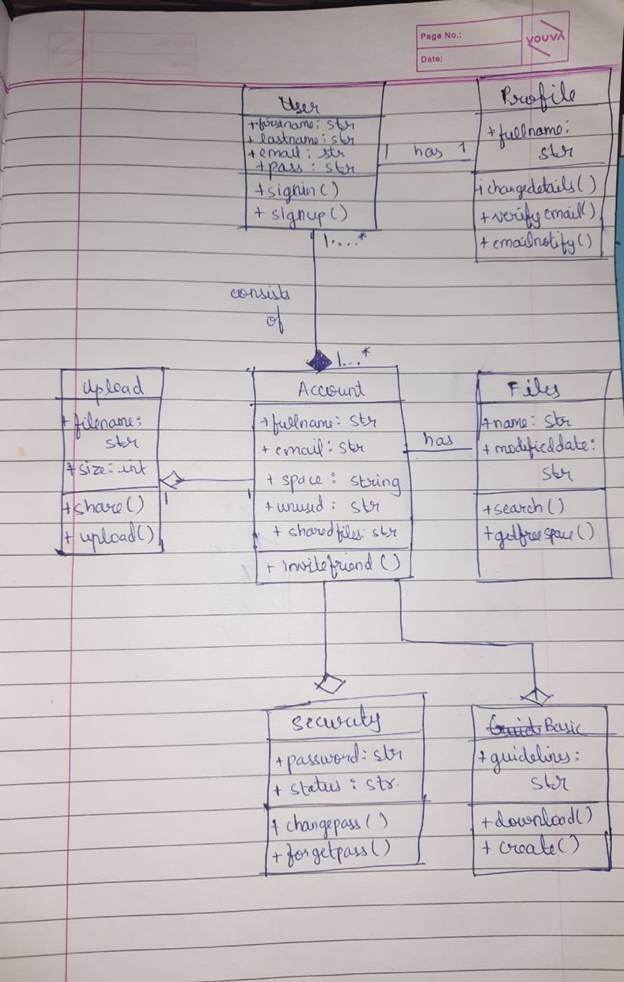 Page No.:
Date:
YOUVA
User
+firstname: str
+lastname: str
+email: str
+pass: str
+signin()
+signup()
1 has 1
Profile
+fullname:
str
+changedetails()
+verifyemail()
+emailnotify()
1....*
consists
of
1...*
Upload
+filename:
str
+size: int
+share()
+upload()
1
1
Account
+fullname: str
+email: str
+space: string
+unused: str
+sharedfiles: str
+invitefriend()
has
Files
+name: str
+modifieddate:
str
+search()
+getfreespace()
Security
+password: str
+status: str.
+changepass()
+forgetpass()
Basic
+guidelines:
str
+download()
+create()